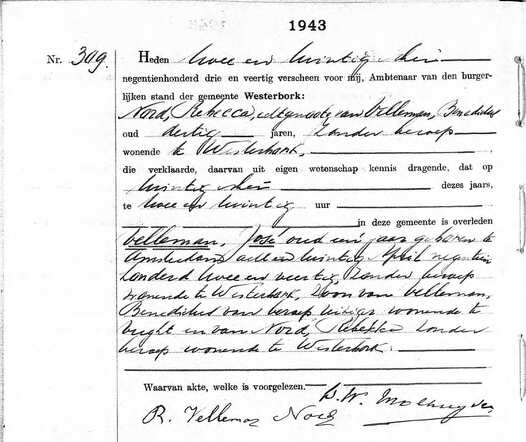 1943
Nr. 309. Heden twee en twintig Mei
negentienhonderd drie en veertig verscheen voor mij, Ambtenaar van den burger-
lijken stand der gemeente Westerbork:
Nord, Rebecca, echtgenoote van Velleman, Benedictus
oud dertig jaren, zonder beroep
wonende te Westerbork,
die verklaarde, daarvan uit eigen wetenschap kennis dragende, dat op
twintig Mei dezes jaars,
te twee en twintig uur
in deze gemeente is overleden
Velleman, José oud een jaar geboren te
Amsterdam acht en twintig April negentien
honderd twee en veertig, zonder beroep
wonende te Westerbork, zoon van Velleman,
Benedictus van beroep wonende te
Vught en van Nord, Rebekka zonder
beroep wonende te Westerbork.
Waarvan akte, welke is voorgelezen.
R. Velleman Nord